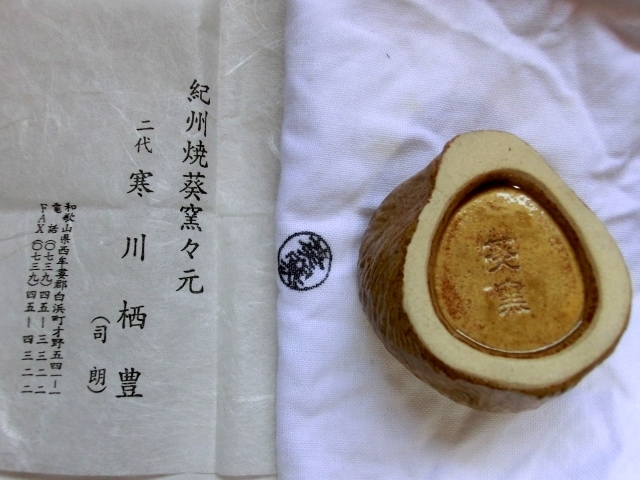 紀州焼葵窯々元
二代 寒川栖豊
(司朗)
和歌山県西牟婁郡白浜町才野一五四一-一
電話(〇七三九)四五-三三二二
FAX(〇七三九)四五-四三二二
葵窯